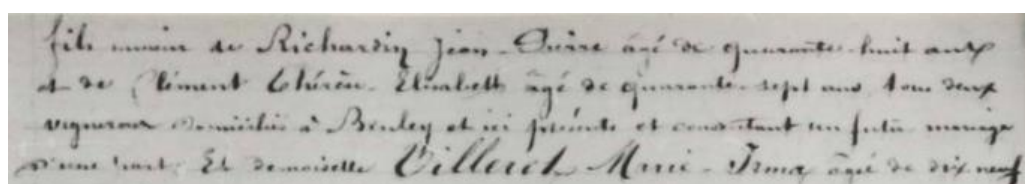 fils mineur de Richardin Jean-Pierre âgé de quarante-huit ans
et de Clément Thérèse-Elisabeth âgé de quarante-sept ans tous deux
vignerons domiciliés à et ici présents et consentant au futur mariage
d'une part. Et demoiselle Villeret Marie-Irma âgée de dix neuf